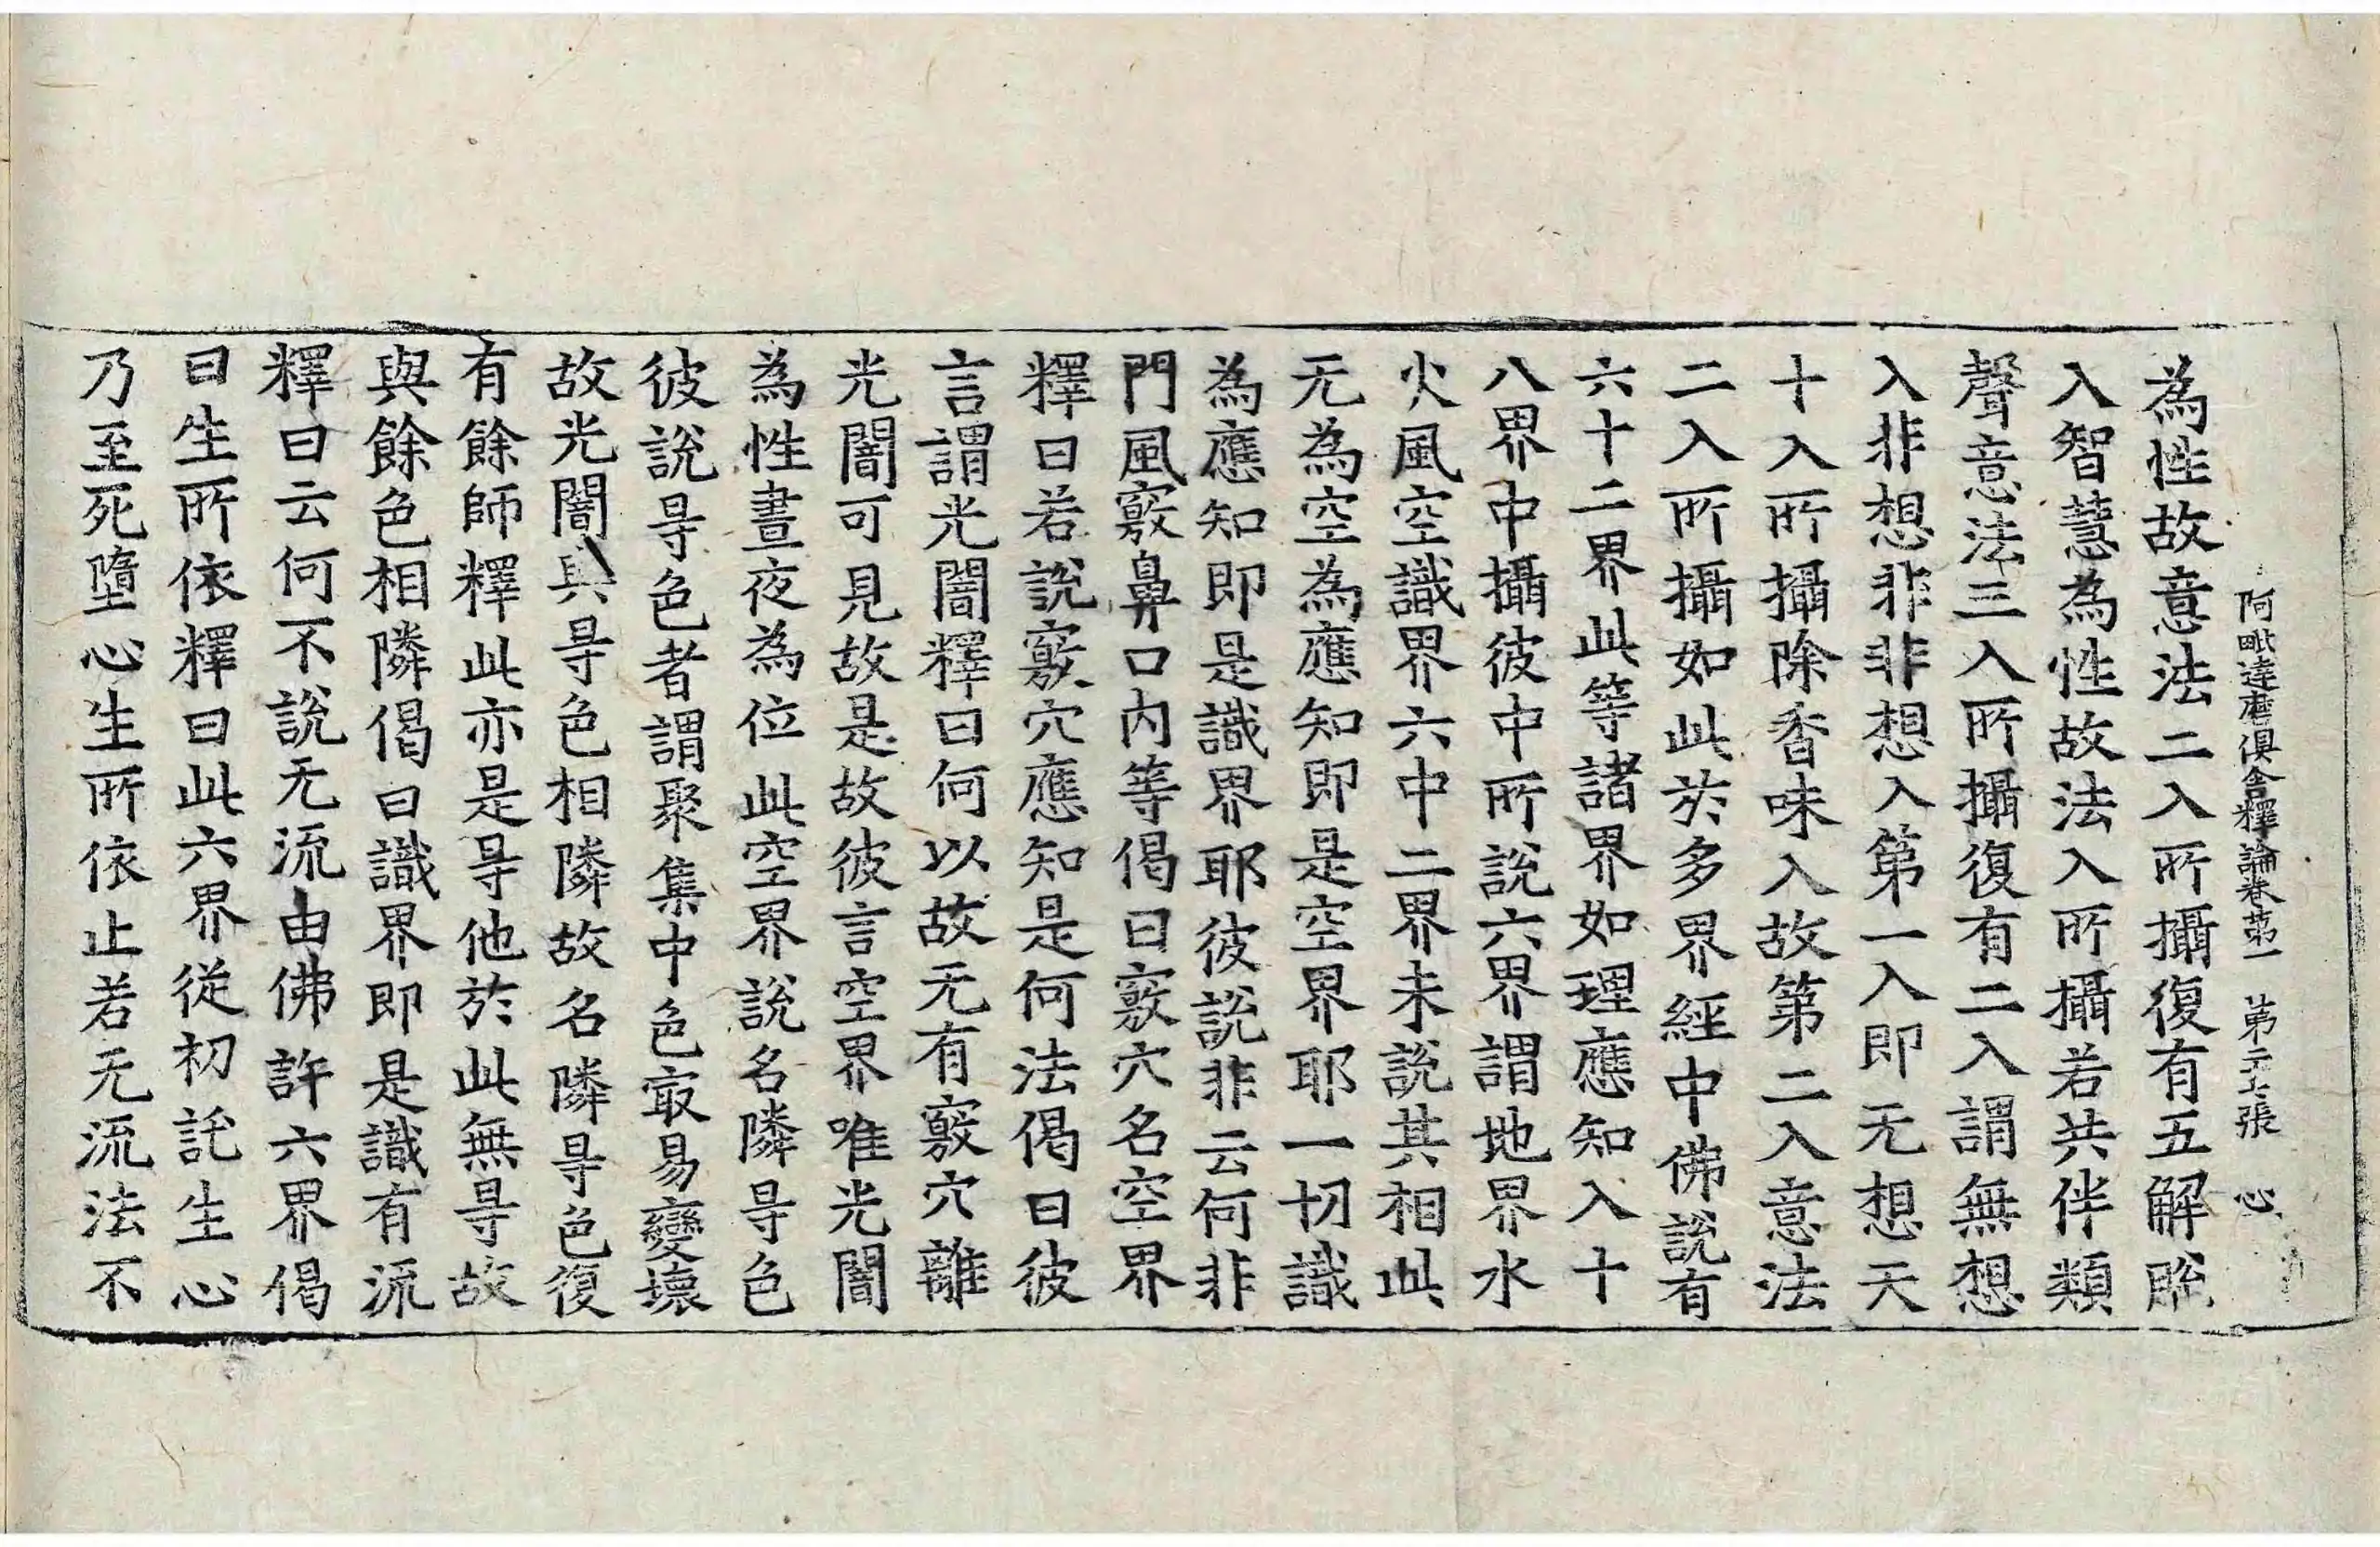 阿毗達磨俱舍釋論卷第一 第二十七張 心
為性故意法二入所攝復有五解脫
入智慧為性故法入所攝若共伴類
聲意法三入所攝復有二入謂無想
入非想非非想入第一入即无想天
十入所攝除香味入故第二入意法
二入所攝如此於多界經中佛說有
六十二界此等諸界如理應知入十
八界中攝彼中所說六界謂地界水
火風空識界六中二界未說其相此
无為空為應知即是空界耶一切識
為應知即是識界耶彼說非云何非
門風竅鼻口內等偈曰竅穴名空界
釋曰若說竅穴應知是何法偈曰彼
言謂光闇釋曰何以故无有竅穴離
光闇可見故是故彼言空界唯光闇
為性晝夜為位此空界說名隣㝵色
彼說㝵色者謂聚集中色㝡易變壞
故光闇與㝵色相隣故名隣㝵色復
有餘師釋此亦是㝵他於此無㝵故
與餘色相隣偈曰識界即是識有流
釋曰云何不說无流由佛許六界偈
曰生所依釋曰此六界從初託生心
乃至死墮心生所依止若无流法不